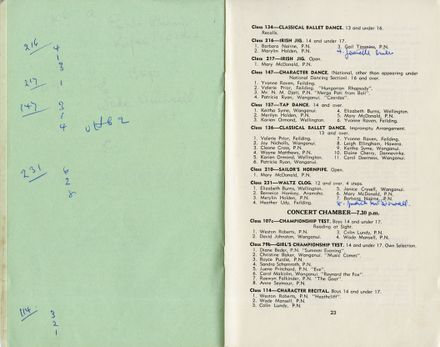 216 4
1
3
217 1
147 3
1
4
231 6
2
8
114 3
2
1
Class 134—CLASSICAL BALLET DANCE. 13 and under 16.
Recalls.
Class 216—IRISH JIG. 14 and under 17.
1. Barbara Nairne, P.N. 3. Gail Timmins, P.N.
2. Marylin Holden, P.N.
Class 217—IRISH JIG. Open.
1. Mary McDonald, P.N.
Class 147—CHARACTER DANCE. (National, other than appearing under
National Dancing Section). 16 and over.
1. Yvonne Raven, Feilding.
2. Valerie Prior, Feilding. "Hungarian Rhapsody".
3. Mr. N. M. Dart, P.N. "Merga Part from Bali".
4. Patricia Ryan, Wanganui. "Czardas".
Class 157—TAP DANCE. 14 and over.
1. Keitha Syme, Wanganui. 4. Elizabeth Burns, Wellington.
2. Merilyn Holden, P.N. 5. Mary McDonald, P.N.
3. Karien Ormond, Wellington. 6. Yvonne Raven, Feilding.
Class 136—CLASSICAL BALLET DANCE. Impromptu Arrangement.
13 and over.
1. Valerie Prior, Feilding. 7. Yvonne Raven, Feilding.
2. Joy Nicholls, Wanganui. 8. Leigh Ellingham, Hawera.
3. Elaine Cross, P.N. 9. Keitha Syme, Wanganui.
4. Wayne Matthews, P.N. 10. Elaine Cherry, Dannevirke.
5. Karien Ormond, Wellington. 11. Carol Deermess, Wanganui.
6. Patricia Ryan, Wanganui.
Class 210—SAILOR'S HORNPIPE. Open.
1. Mary McDonald, P.N.
Class 231—WALTZ CLOG. 12 and over. 4 steps.
1. Elizabeth Burns, Wellington. 5. Janice Cowell, Wanganui.
2. Berwince Hankey, Aramoho. 6. Mary McDonald, P.N.
3. Merylin Holden, P.N. 7. Barbara Nairne, P.N.
4. Heather Udy, Feilding.
CONCERT CHAMBER—7.30 p.m.
Class 107c—CHAMPIONSHIP TEST. Boys 14 and under 17.
Reading at Sight.
1. Weston Roberts, P.N. 3. Colin Lundy, P.N.
2. David Johnston, Wanganui. 4. Wade Mansell, P.N.
Class 79b—GIRL'S CHAMPIONSHIP TEST. 14 and under 17. Own Selection.
1. Diane Beder, P.N. "Summer Evening".
2. Christine Baker, Wanganui. "Music Comes".
3. Royce Purdie, P.N.
4. Sandra Schamroth, P.N.
5. Lurne Prichard, P.N. "Eve".
6. Carol Malcolm, Wanganui. "Reynard the Fox".
7. Raewyn Falkinder, P.N. "The Goat".
8. Anne Seymour, P.N.
Class 114—CHARACTER RECITAL. Boys 14 and under 17.
1. Weston Roberts, P.N. "Heathcliff".
2. Wade Mansell, P.N.
3. Colin Lundy, P.N.
23